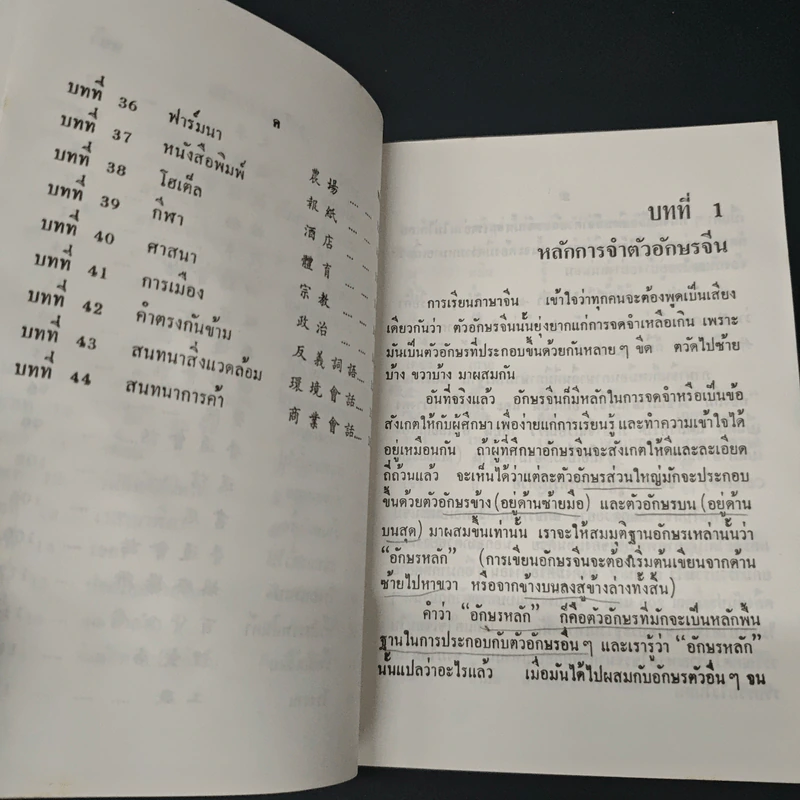 ค
บทที่ 36 ฟาร์มนา 農場....
บทที่ 37 หนังสือพิมพ์ 報紙....
บทที่ 38 โฮเต็ล 酒店....
บทที่ 39 กีฬา 體育....
บทที่ 40 ศาสนา 宗教....
บทที่ 41 การเมือง 政治....
บทที่ 42 คำตรงกันข้าม 反義詞語...
บทที่ 43 สนทนาสิ่งแวดล้อม 環境會話...
บทที่ 44 สนทนาการค้า 商業會話...
บทที่ 1
หลักการจำตัวอักษรจีน
การเรียนภาษาจีน เข้าใจว่าทุกคนจะต้องพูดเป็นเสียง
เดียวกันว่า ตัวอักษรจีนนั้นยุ่งยากแก่การจดจำเหลือเกิน เพราะ
มันเป็นตัวอักษรที่ประกอบขึ้นด้วยกันหลายๆ ขีด ตวัดไปซ้าย
บ้าง ขวาบ้าง มาผสมกัน
อันที่จริงแล้ว อักษรจีนก็มีหลักในการจดจำหรือเป็นข้อ
สังเกตให้กับผู้ศึกษา เพื่อง่ายแก่การเรียนรู้ และทำความเข้าใจได้
อยู่เหมือนกัน ถ้าผู้ที่ศึกษาอักษรจีนจะสังเกตให้ดีและละเอียด
ถี่ถ้วนแล้ว จะเห็นได้ว่าแต่ละตัวอักษรส่วนใหญ่มักจะประกอบ
ขึ้นด้วยตัวอักษรข้าง (อยู่ด้านซ้ายมือ) และตัวอักษรบน (อยู่ด้าน
บนสุด) มาผสมขึ้นเท่านั้น เราจะให้สมมุติฐานอักษรเหล่านั้นว่า
“อักษรหลัก” (การเขียนอักษรจีนจะต้องเริ่มต้นเขียนจากด้าน
ซ้ายไปหาขวา หรือจากข้างบนลงสู่ข้างล่างทั้งสิ้น)
คำว่า “อักษรหลัก” ก็คือตัวอักษรที่มักจะเป็นหลักพื้น
ฐานในการประกอบกับตัวอักษรอื่นๆ และเรารู้ว่า “อักษรหลัก”
นั้นแปลว่าอะไรแล้ว เมื่อมันได้ไปผสมกับอักษรตัวอื่นๆ จน